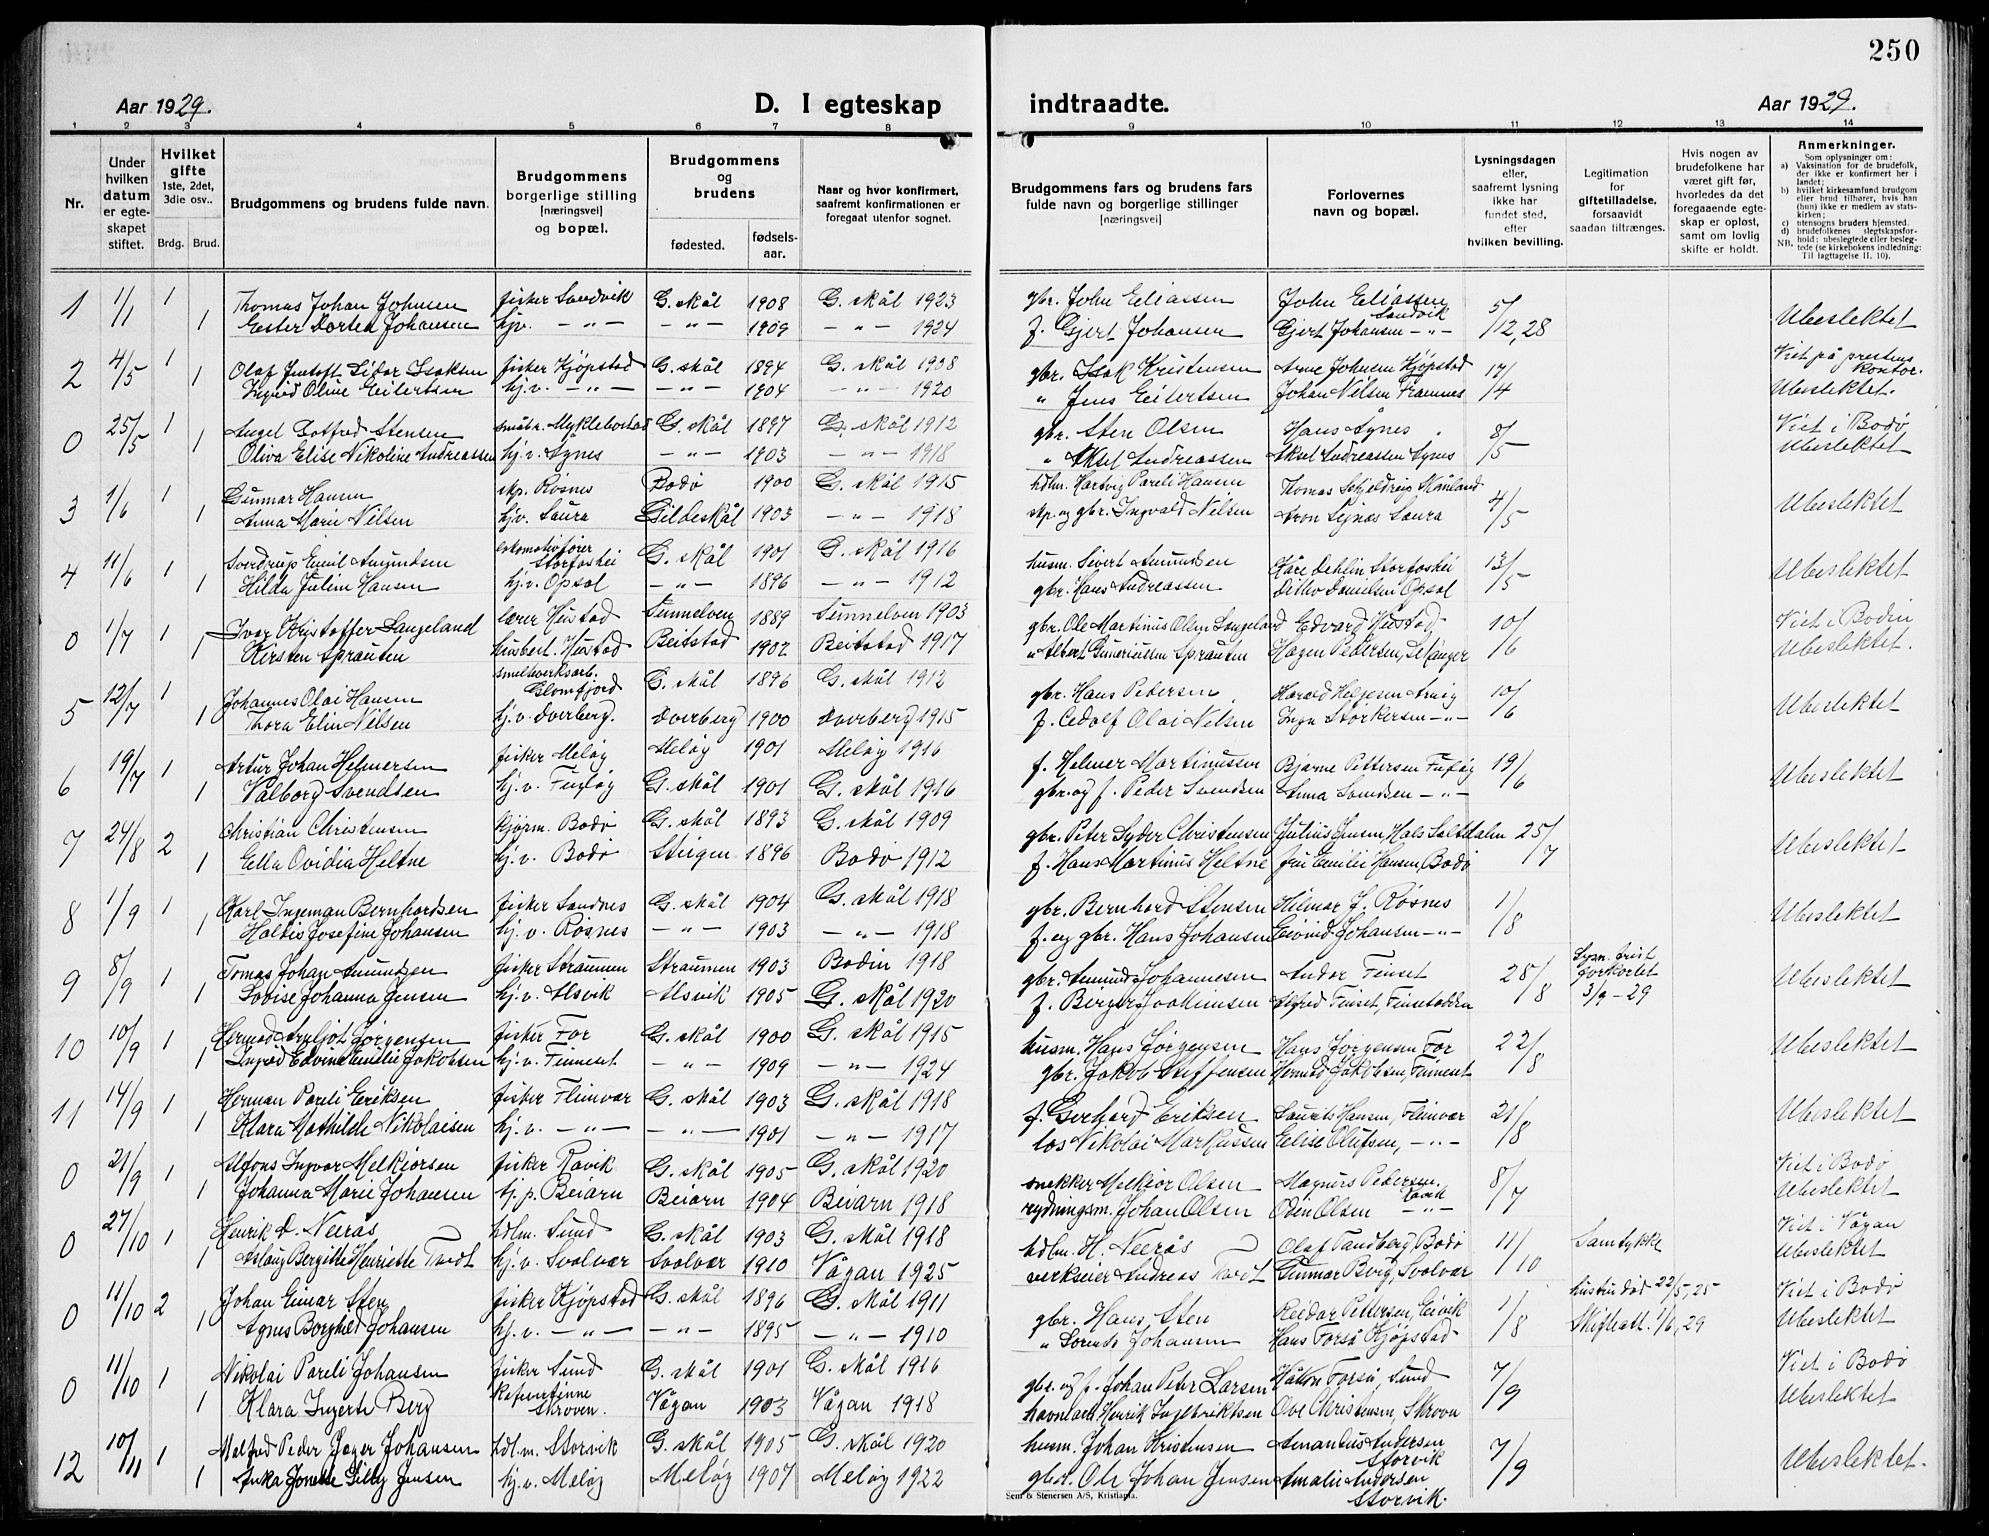 250
Aar 1929.
D. I egteskap indtraadte.
Aar 1929.
1 2 3 4 5 6 7 8 9 10 11 12 13 14
Nr.
Under hvilken datum er egteskapet stiftet.
Hvilket gifte 1ste, 2det, 3die osv..
Brdg. Brud.
Brudgommens og brudens fulde navn.
Brudgommens borgerlige stilling [næringsvei] og bopæl.
Brudgommens og brudens
fødested.
fødselsaar.
Naar og hvor konfirmert, saafremt konfirmationen er foregaat utenfor sognet.
Brudgommens fars og brudens fars fulde navn og borgerlige stillinger [næringsvei]
Forlovernes navn og bopæl.
Lysningsdagen eller, saafremt lysning ikke har fundet sted, efter hvilken bevilling.
Legitimation for giftetilladelse, forsaavidt saadan tiltrænges.
Hvis nogen av brudefolkene har været gift før, hvorledes da det foregaaende egteskap er opløst, samt om lovlig skifte er holdt.
Anmerkninger.
Som oplysninger om:
a) Vaksination for de brudefolk, der ikke er konfirmert her i landet;
b) hvilket kirkesamfund brudgom eller brud tilhører, hvis han (hun) ikke er medlem av statskirken;
c) utensogns bruders hjemsted.
d) brudefolkenes slegtskapsforhold: ubeslegtede eller beslegtede (se kirkebokens indledning: Til iagttagelse II. 10).
NB.
1 1/1 1 Thomas Johan Johnsen fisker Sandvik G. skål 1908 G. skål 1923 gbr. John Eliassen John Eliassen Sandvik 5/12,28 Ubeslektet
1 Ester Dortea Johansen hjv. —„— —„— 1909 —„— 1924 f. Gjert Johansen Gjert Johansen —„—
2 4/5 1 Olaf Sidor Isaksen fisker Kjøpstad G. skål 1894 G. skål gbr. Isak Kristensen Arne Johnsen Kjøpstad 17/4 Viet på prestens kontor.
1 Ingrid Oline Eilertsen hj.v. —„— —„— 1904 —„— 1920 „ Jens Eilertsen Johan Nilsen Framnes Ubeslektet.
0 25/5 1 Angel Gotfred Stensen Myklebostad G. skål 1897 G. skål 1912 gbr. Sten Olsen Hans Synes 8/5 Viet i Bodø
1 Oliva Elise Nikoline Andreassen hj.v. Synes —„— 1903 —„— 1918 „ Aksel Andreassen Aksel Andreassen Synes Ubeslektet
3 1/6 1 Gunnar Hansen skp. Røsnes Bodø 1900 G. skål 1915 hdlm. Hartvig Pareli Hansen Thomas Schjeldrup 4/5 Ubeslektet
1 Anna Marie Nilsen hjv. Saura Gildeskål 1903 —„— 1918 skp. og gbr. Ingvald Nilsen Aron Saura
4 11/6 1 Sverdrup Emil Amundsen lokomotivfører Storfoshei G. skål 1901 G. skål 1916 husm. Sivert Amundsen Kåre Dehlin Storfoshei 13/5 Ubeslektet
1 Hilda Juline Hansen hj.v. Opsal —„— 1896 —„— 1912 gbr. Hans Andreassen Ditlev Danielsen Opsal
0 1/7 1 Ivar Kristoffer Langeland lærer Hustad Sunnelven 1889 Sunnelven 1903 gbr. Ole Martinus Olsen Langeland Edvard Hustad 10/6 Viet i Bodin
1 Kirsten Sprauten Hustad Beitstad 1902 Beitstad 1917 „ Albert Sprauten Hagen Pedersen, Ubeslektet.
5 12/7 1 Johannes Olai Hansen smelteverksarb. Glomfjord G. skål 1896 G. skål 1912 gbr. Hans Pedersen Harald Helgesen 10/6 Ubeslektet
1 Thora Elin Nilsen hj.v. Dverberg. Dverberg 1900 Dverberg 1915 f. Olai Nilsen Inga Storkersen —„—
6 19/7 1 Artur Johan Helmersen fisker Meløy Meløy 1901 Meløy 1916 f. Helmer Martinussen Bjarne Pettersen Fugløy 19/6 Ubeslektet
1 Valborg Svendsen hj.v. Fugløy G. skål 1901 G. skål 1916 gbr. og f. Peder Svendsen Anna Svendsen —„—
7 24/8 2 Christian Christensen kjøpm. Bodø G. skål 1893 G. skål 1909 gbr. Peter Syder Christensen Julius Jensen, Hals Saltdalen 25/7 Ubeslektet
1 Ella Ovidia Heltne hj.v. Bodø Steigen 1896 Bodø 1912 f. Hans Martinus Heltne fru Emilie Hansen, Bodø
8 1/9 1 Karl Ingeman Bernhardsen fisker Sandnes G. skål 1904 G. skål 1918 gbr. Bernhard Stensen Hilmar J. Røsnes 1/8 Ubeslektet
1 Halbis Josefine Johansen hj.v. Røsnes —„— 1903 —„— 1918 f. og gbr. Hans Johansen Eivind Johansen —„—
9 8/9 1 Tomas Johan Amundsen fisker Straumen Straumen 1903 Bodin 1918 gbr. Amund Johannesen Andor Finset 28/8 Lysn. frist forkortet 3/9-29 Ubeslektet
1 Lovise Johanna Jensen hj.v. Alsvik Alsvik 1905 G. skål 1920 f. Berger Joakimsen Alfred Finset,
10 10/9 1 Hermod Arnljot Jørgensen fisker For G. skål 1900 G. skål 1915 husm. Hans Jørgensen Hans Jørgensen For 22/8 Ubeslektet
1 Ingrid Edvine Emilie Jakobsen hj.v. Finnent —„— 1909 —„— 1924 gbr. Jakob Steffensen Hermod Jakobsen,
11 14/9 1 Herman Pareli Eriksen fisker Fleinvær G. skål 1903 G. skål 1918 f. Gerhard Eriksen Laurits Hansen, Fleinvær 21/8 Ubeslektet
1 Klara Mathilde Nikolaisen hj.v. —„— —„— 1901 —„— 1917 los Nikolai Markussen Elise Olufsen, —„—
0 21/9 1 Alfons Ingvar Melkiorsen fisker Ravik G. skål 1905 G. skål 1920 snekker Melkior Olsen Magnus Pedersen, Ravik 8/7 Viet i Bodø
1 Johanna Marie Johansen hj.p. Beiarn Beiarn 1904 Beiarn 1918 rydningsm. Johan Olsen Odin Olsen —„— Ubeslektet
0 27/10 1 Henrik d. Neerås hdlm. Sund G. skål 1903 G. skål 1918 hdlm. H. Neerås Olaf Tandberg Bodø 11/10 Samtykke Viet i Vågan
1 Aslaug Bergitte Henriette Tvedt hj.v. Svolvær Svolvær 1910 Vågan 1925 verkseier Andreas Tvedt Gunnar Berg, Svolvær Ubeslektet
0 11/10 2 Johan Einar Sten fisker Kjøpstad G. skål 1896 G. skål 1911 gbr. Hans Sten Reidar Pettersen, 1/8 hustru død 22/5, 25 Viet i Bodø
1 Agnes Borghild Johansen hj.v. —„— —„— 1895 —„— 1910 „ Johansen Hans Forså Kjøpstad Skifteatt. 1/6, 29 Ubeslektet
0 11/10 1 Nikolai Pareli Johansen fisker Sund G. skål 1901 G. skål 1916 gbr. og f. Johan Peter Larsen Håkon Forså, Sund 7/9 Viet i Bodø
1 Klara Ingerte Berg Skroven. Vågan 1903 Vågan 1918 Henrik Ingebriktsen Ove Christensen, Skroven Ubeslektet
12 10/11 1 Malfred Peder Jager Johansen hdl.m. Storvik G. skål 1905 G. skål 1920 husm. Johan Kristensen Amandus Andersen Storvik 7/9 Ubeslektet.
1 Anka Jonette Silly Jensen hj.v. Meløy Meløy 1907 Meløy 1922 Ole Johan Jensen Amalie Andersen Storvik.
Sem & Stenersen A/S, Kristiania.